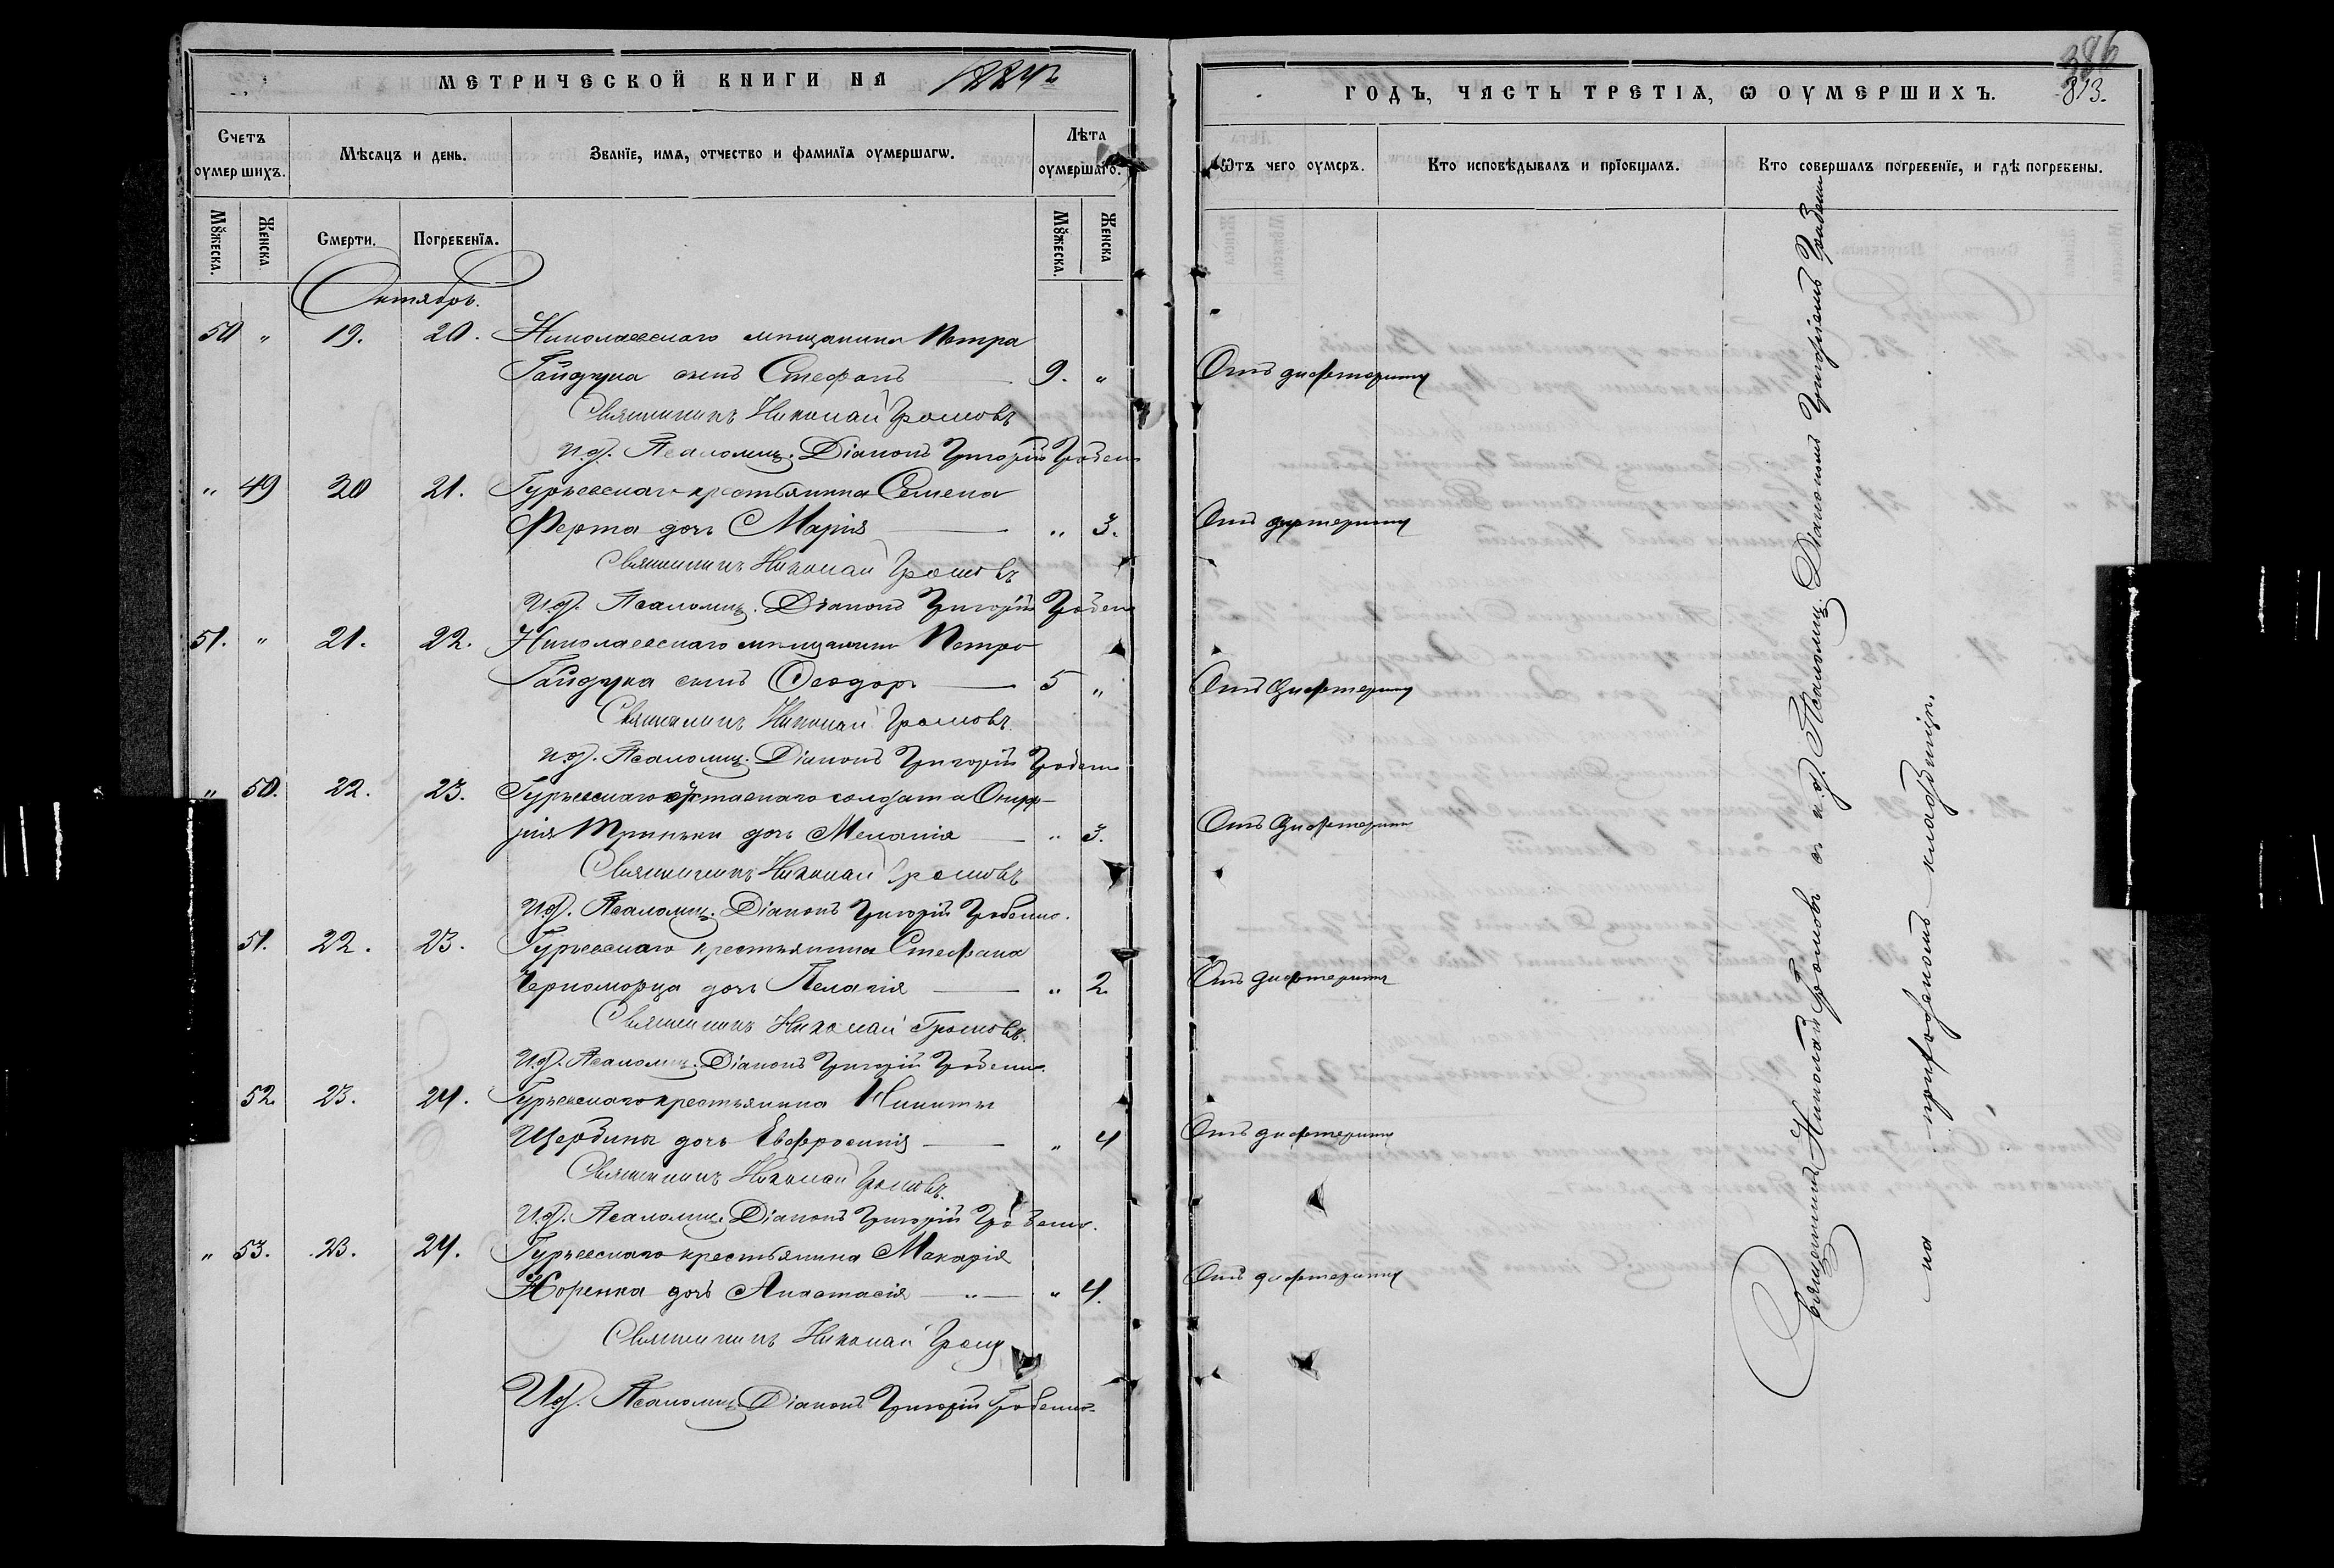 МЕТРИЧЕСКОЙ КНИГИ НА 1884й
Счетъ оумершихъ.
Мѣсяцъ и день.
Званїе, имѧ, отчество и фамилїѧ оумершагѡ.
Лѣта оумершаго.
Мꙋжеска.
Женска
Смерти.
Погребенїѧ.
Мꙋжеска.
Женска
Октябрь.
50 " 19. 20. Николаевскаго мѣщанина Петра
Гайдука сынъ Стефанъ 9. "
Священникъ Николай Громовъ
И.д. Псаломщ. Діаконъ Григорій
" 49 20 21. Гурьевскаго крестьянина Семена
Ферта дочь Марія " 3.
Священникъ Николай Громовъ
И.д. Псаломщ. Діаконъ Григорій
51. " 21. 22. Николаевскаго мѣщанина Петра
Гайдука сынъ Ѳеодоръ 5 "
Священникъ Николай Громовъ
И.д. Псаломщ. Діаконъ Григорій
" 50. 22. 23. Гурьевскаго отставнаго солдата Онуф-
рія дочь Меланія " 3.
Священникъ Николай Громовъ
И.д. Псаломщ. Діаконъ Григорій
51. 22. 23. Гурьевскаго крестьянина Стефана
Черноморца дочь Пелагія " 2
Священникъ Николай Громовъ
И.д. Псаломщ. Діаконъ Григорій
52. 23. 24. Гурьевскаго крестьянина Никиты
Щербины дочь Евфросинія " 4
Священникъ Николай Громовъ
И.д. Псаломщ. Діаконъ Григорій
" 53. 23. 24. Гурьевскаго крестьянина Макарія
дочь Анастасія " " 4.
Священникъ Николай
И.д. Псаломщ. Діаконъ Григорій
386
813.
ГОДЪ, ЧАСТЬ ТРЕТІѦ, Ѡ ОУМЕРШИХЪ.
Ѿтъ чего оумеръ.
Кто исповѣдывалъ и прїобщалъ.
Кто совершалъ погребенїе, и гдѣ погребены.
Отъ дифтерита
Отъ дифтерита
Отъ дифтерита
Отъ дифтерита
Отъ дифтерита
Отъ дифтерита
Отъ дифтерита
Священникъ Николай Громовъ съ и.д. Псаломщ. Діакономъ Григоріемъ
на приходскомъ кладбищѣ.